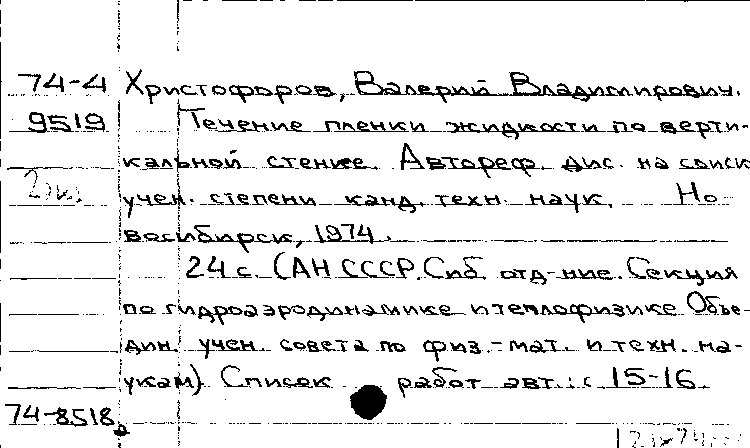 74-4 Христофоров, Валерий Владимирович.
9519 Течение пленки жидкости по верти-
кальной стенке. Автореф. дис. на соиск
учен. степени канд. техн. наук. Но-
восибирск, 1974.
24 с. (АН СССР. Сиб. отд-ние. Секция
по гидроаэродинамике и теплофизике Объе-
дин. учен. совета по физ.-мат. и техн. на-
укам). Список работ авт.: с 15-16.
74-8518